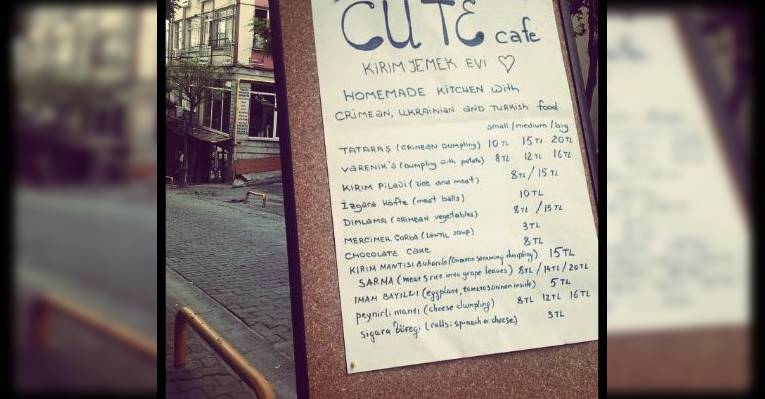 CUTE cafe
KIRIM YEMEK EVI ♡
HOMEMADE KITCHEN with
CRIMEAN, UKRAINIAN AND TURKISH food
small/medium/big
TATARAŞ (CRIMEAN Dumpling) 10 TL 15 TL 20 TL
VARENIK'S (Dumpling with potato) 8 TL 12 TL 16 TL
KIRIM PILAVI (rice and meat) 8 TL / 15 TL
Izgara Köfte (meat balls) 10 TL
DIMLAMA (CRIMEAN vegetables) 8 TL / 15 TL
MERCIMEK ÇORBA (Lentil soup) 3 TL
CHOCOLATE CAKE 8 TL
KIRIM MANTISI Buharda (Crimean steaming dumpling) 15 TL
SARMA (meat & rice into grape leaves) 8 TL / 14 TL / 20 TL
IMAM BAYILDI (eggplant, tomatos, onion inside) 5 TL
peynirli mantı (cheese dumpling) 8 TL 12 TL 16 TL
sigara böreği (rolls: spinach or cheese) 3 TL